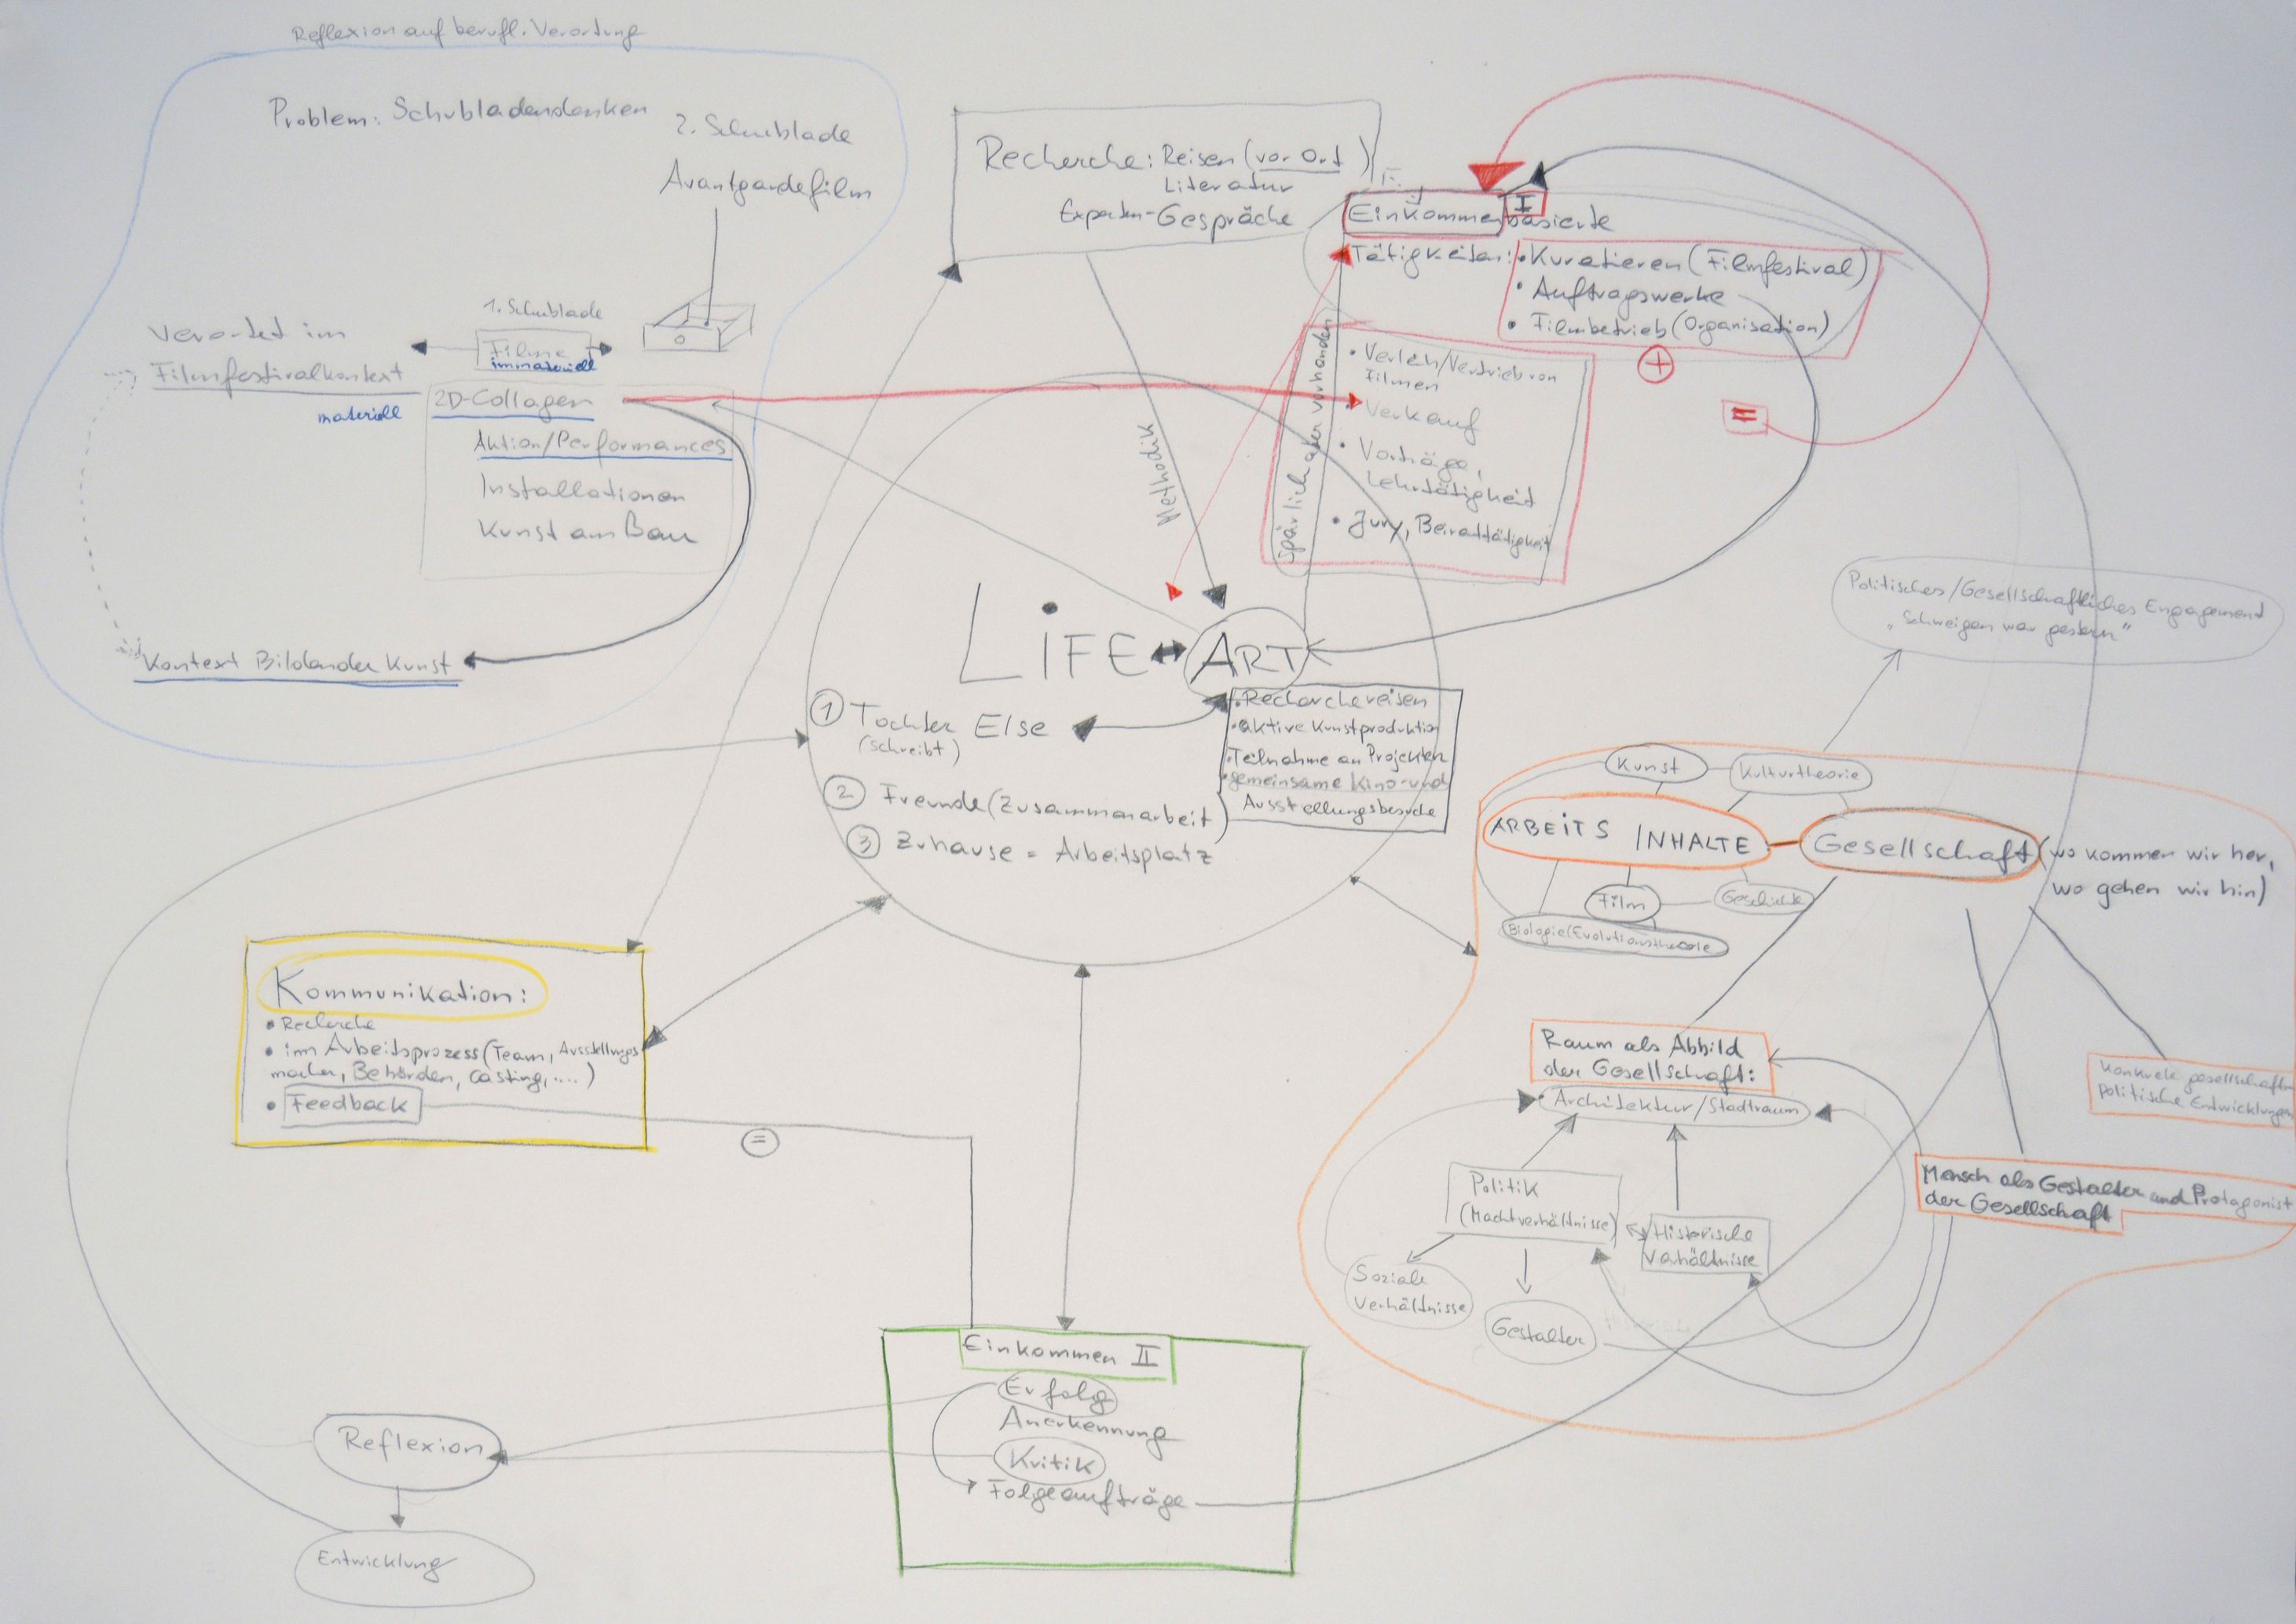 Reflexion auf berufl. Verortung
Problem: Schubladendenken
2. Schublade
Avantgardefilm
1. Schublade
Verortet im
Filmfestivalkontext
Filme
immateriell
materiell
2D-Collagen
Aktion/Performances
Installationen
Kunst am Bau
Kontext Bildender Kunst
Recherche: Reisen (vor Ort)
Literatur
Experten-Gespräche
Methodik
Einkommen I basierte
Tätigkeiten: • Kuratieren (Filmfestival)
• Auftragswerke
• Filmbetrieb (Organisation)
+
=
spärlich aber vorhanden
• Verleih/Vertrieb von
Filmen
• Verkauf
• Vorträge,
Lehrtätigkeit
• Jury, Beiratstätigkeit
LiFE ART
① Tochter Else
(schreibt)
② Freunde (Zusammenarbeit)
③ Zuhause = Arbeitsplatz
• Recherchereisen
• aktive Kunstproduktion
• Teilnahme an Projekten
• gemeinsame Kino- und
Ausstellungsbesuche
Politisches/Gesellschaftliches Engagement
„Schweigen war gestern"
Kunst
Kulturtheorie
ARBEiTS INHALTE
Gesellschaft (wo kommen wir her,
wo gehen wir hin)
Film
Geschichte
Biologie(Evolutionstheorie
Raum als Abbild
der Gesellschaft:
• Architektur/Stadtraum
Politik
(Machtverhältnisse)
Historische
Verhältnisse
Soziale
Verhältnisse
Gestalter
Konkrete gesellschafts
politische Entwicklungen
Mensch als Gestalter und Protagonist
der Gesellschaft
Kommunikation:
• Recherche
• im Arbeitsprozess (Team, Ausstellungs
macher, Behörden, Casting, ....)
• Feedback
=
Einkommen II
Erfolg
Anerkennung
Kritik
Folgeaufträge
Reflexion
Entwicklung